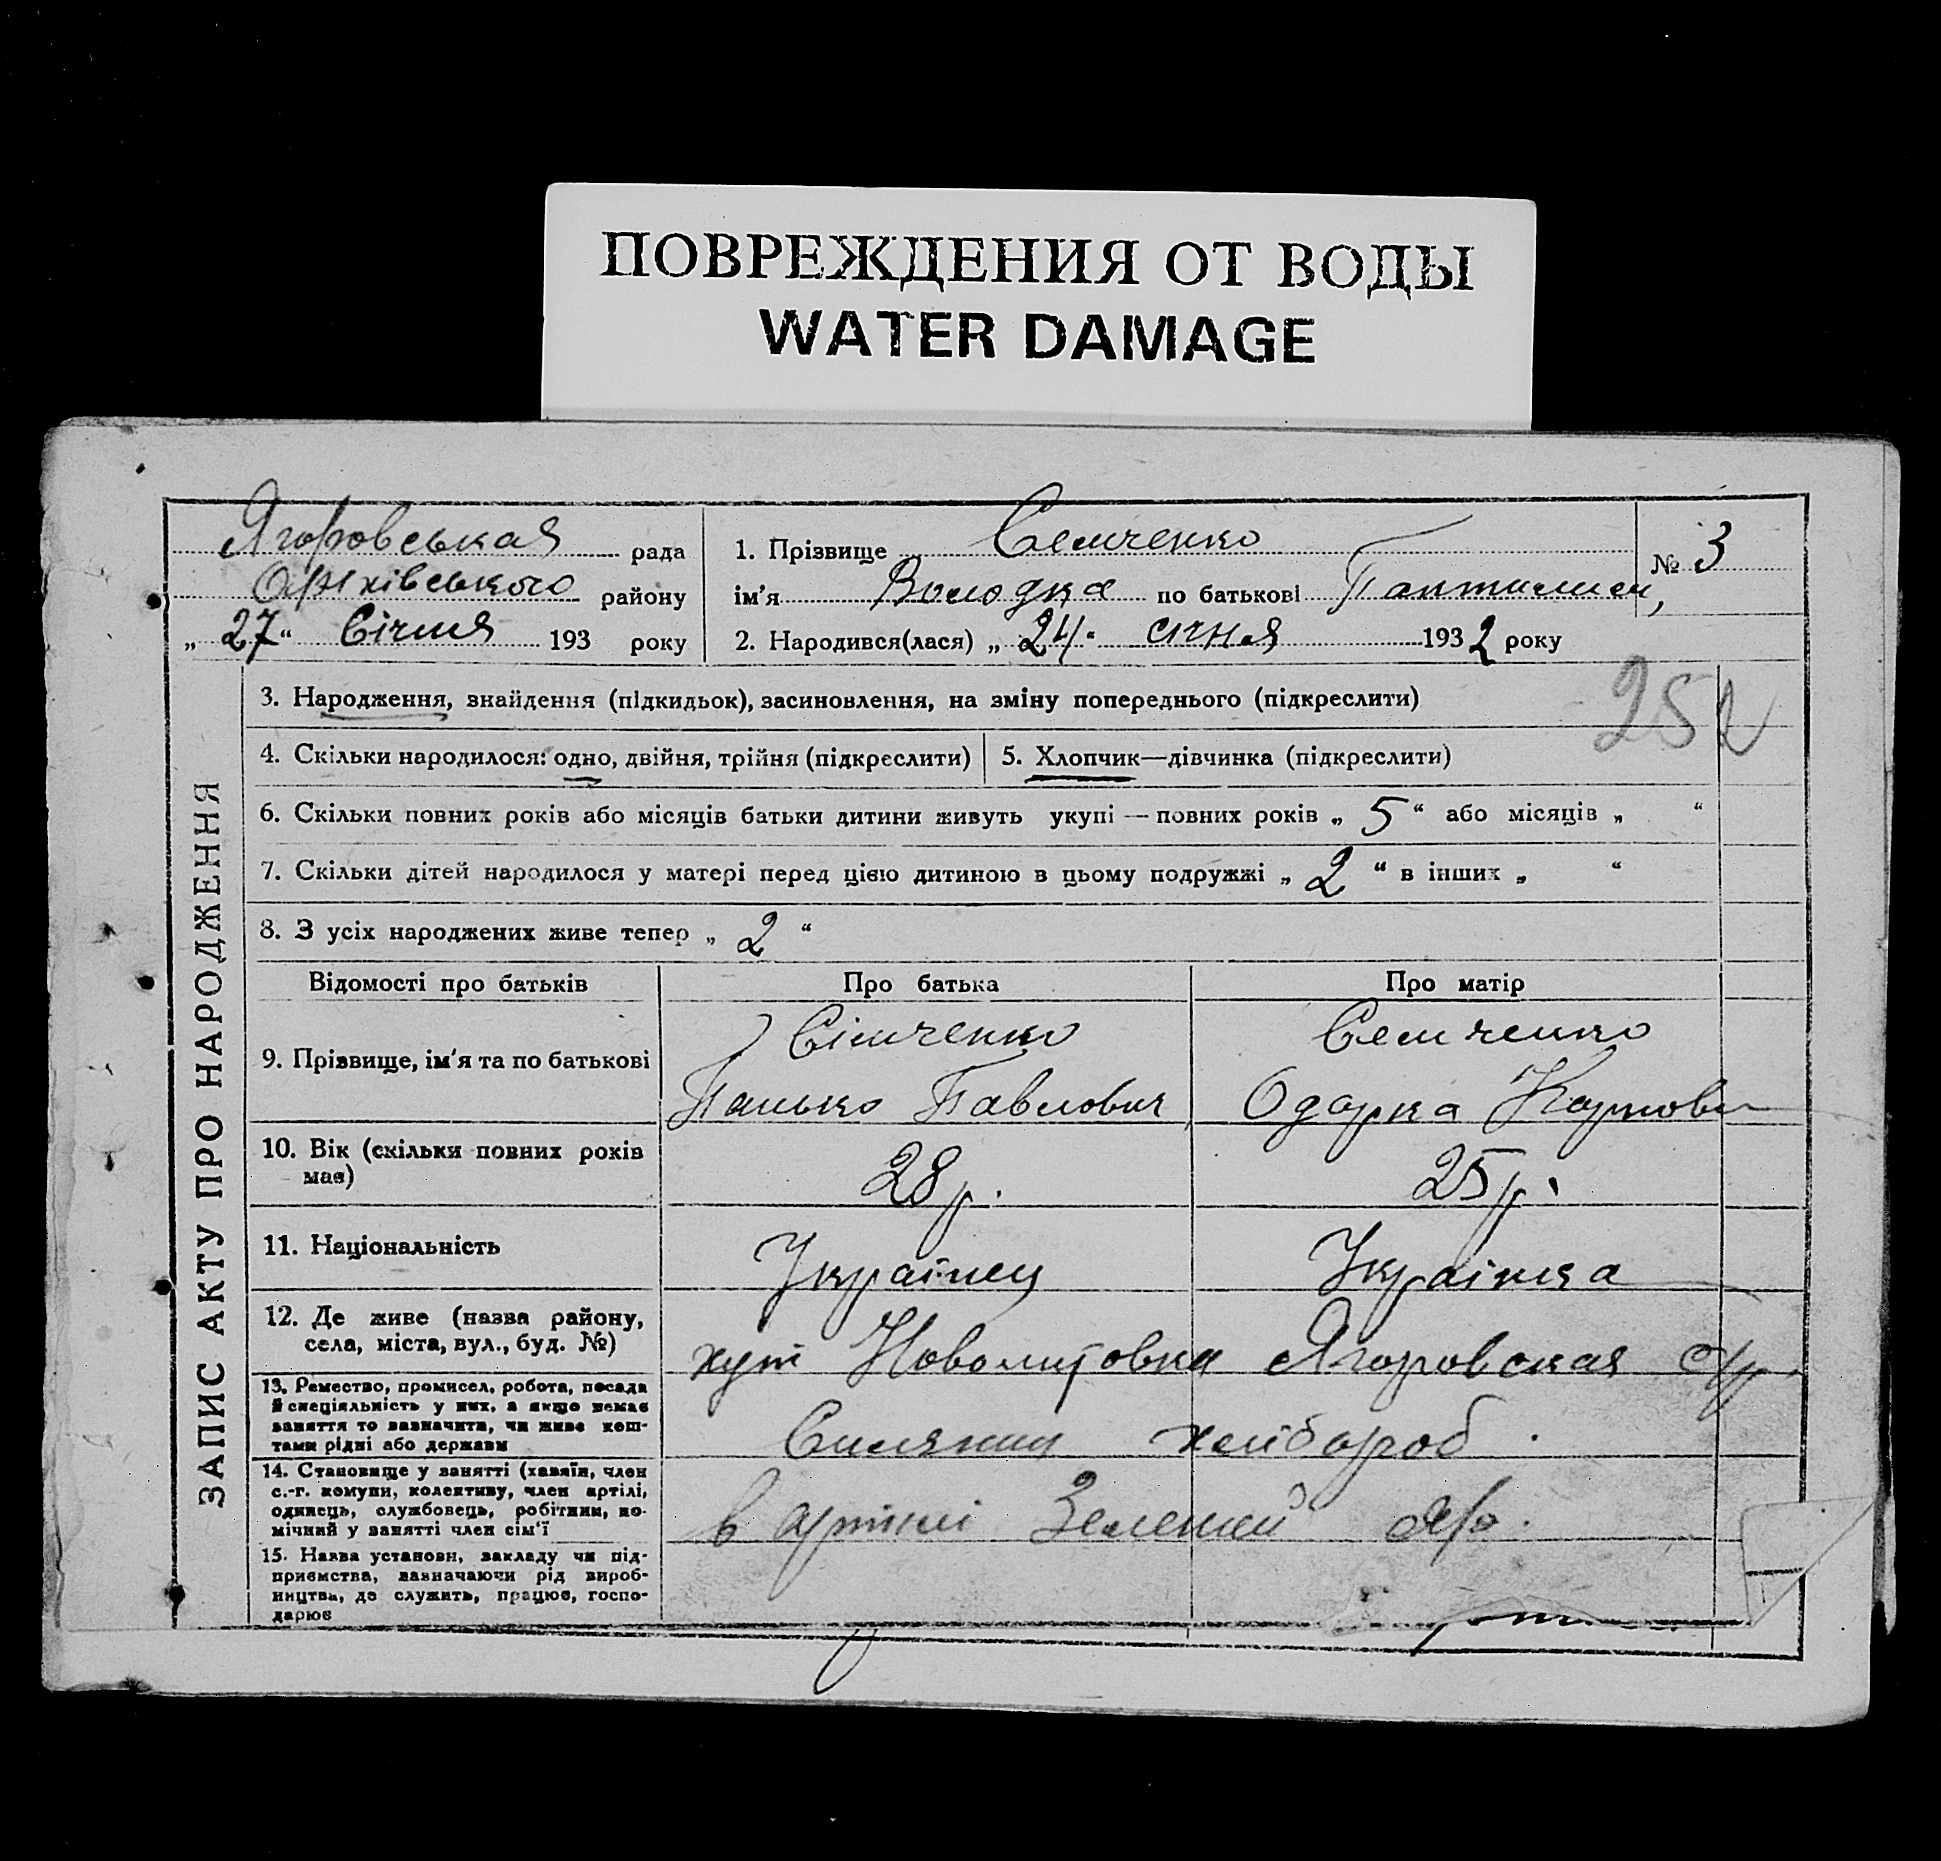 ПОВРЕЖДЕНИЯ ОТ ВОДЫ
WATER DAMAGE
Ягоровськая рада
Оріхівського району
„ 27 “ Січня 193 року
1. Прізвище Семченко
№ 3
ім'я Володка по батькові
2. Народився(лася) „ 24 “ січня 1932 року
252
3. Народження, знайдення (підкидьок), засиновлення, на зміну попереднього (підкреслити)
4. Скільки народилося: одно, двійня, трійня (підкреслити)
5. Хлопчик—дівчинка (підкреслити)
6. Скільки повних років або місяців батьки дитини живуть укупі — повних років „ 5 “ або місяців „ “
7. Скільки дітей народилося у матері перед цією дитиною в цьому подружжі „ 2 “ в інших „ “
8. З усіх народжених живе тепер „ 2 “
ЗАПИС АКТУ ПРО НАРОДЖЕННЯ
Відомості про батьків Про батька Про матір
9. Прізвище, ім'я та по батькові
Сімченко
Панько Павлович
Семченко
Одарка Карповн
10. Вік (скільки повних років
має)
28 р.
25 р.
11. Національність
Українец
Українка
12. Де живе (назва району,
села, міста, вул., буд. №)
хут Ягоровская с/р,
13. Ремество, промисел, робота, посада
й спеціяльність у них, а якщо немає
заняття то зазначити, чи живе кош-
тами рідні або держави
хлібороб.
14. Становище у занятті (хазяїн, член
с.-г. комуни, колективу, член артілі,
одинець, службовець, робітник, по-
мічний у занятті член сім'ї
в артілі Зелений Яр.
15. Назва установи, закладу чи під-
приємства, зазначаючи рід вироб-
ництва, де служить, працює, госпо-
дарює